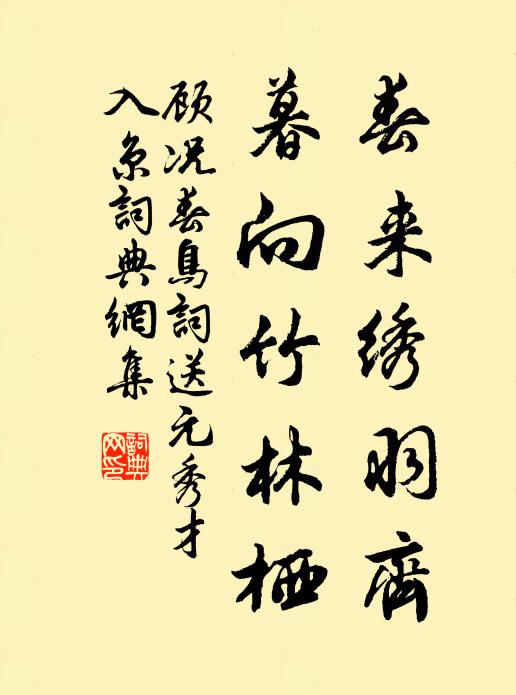 春来绣羽齐
暮向竹林栖
顾况春鸟詞送元秀才
入京詞典網集
詞典网印